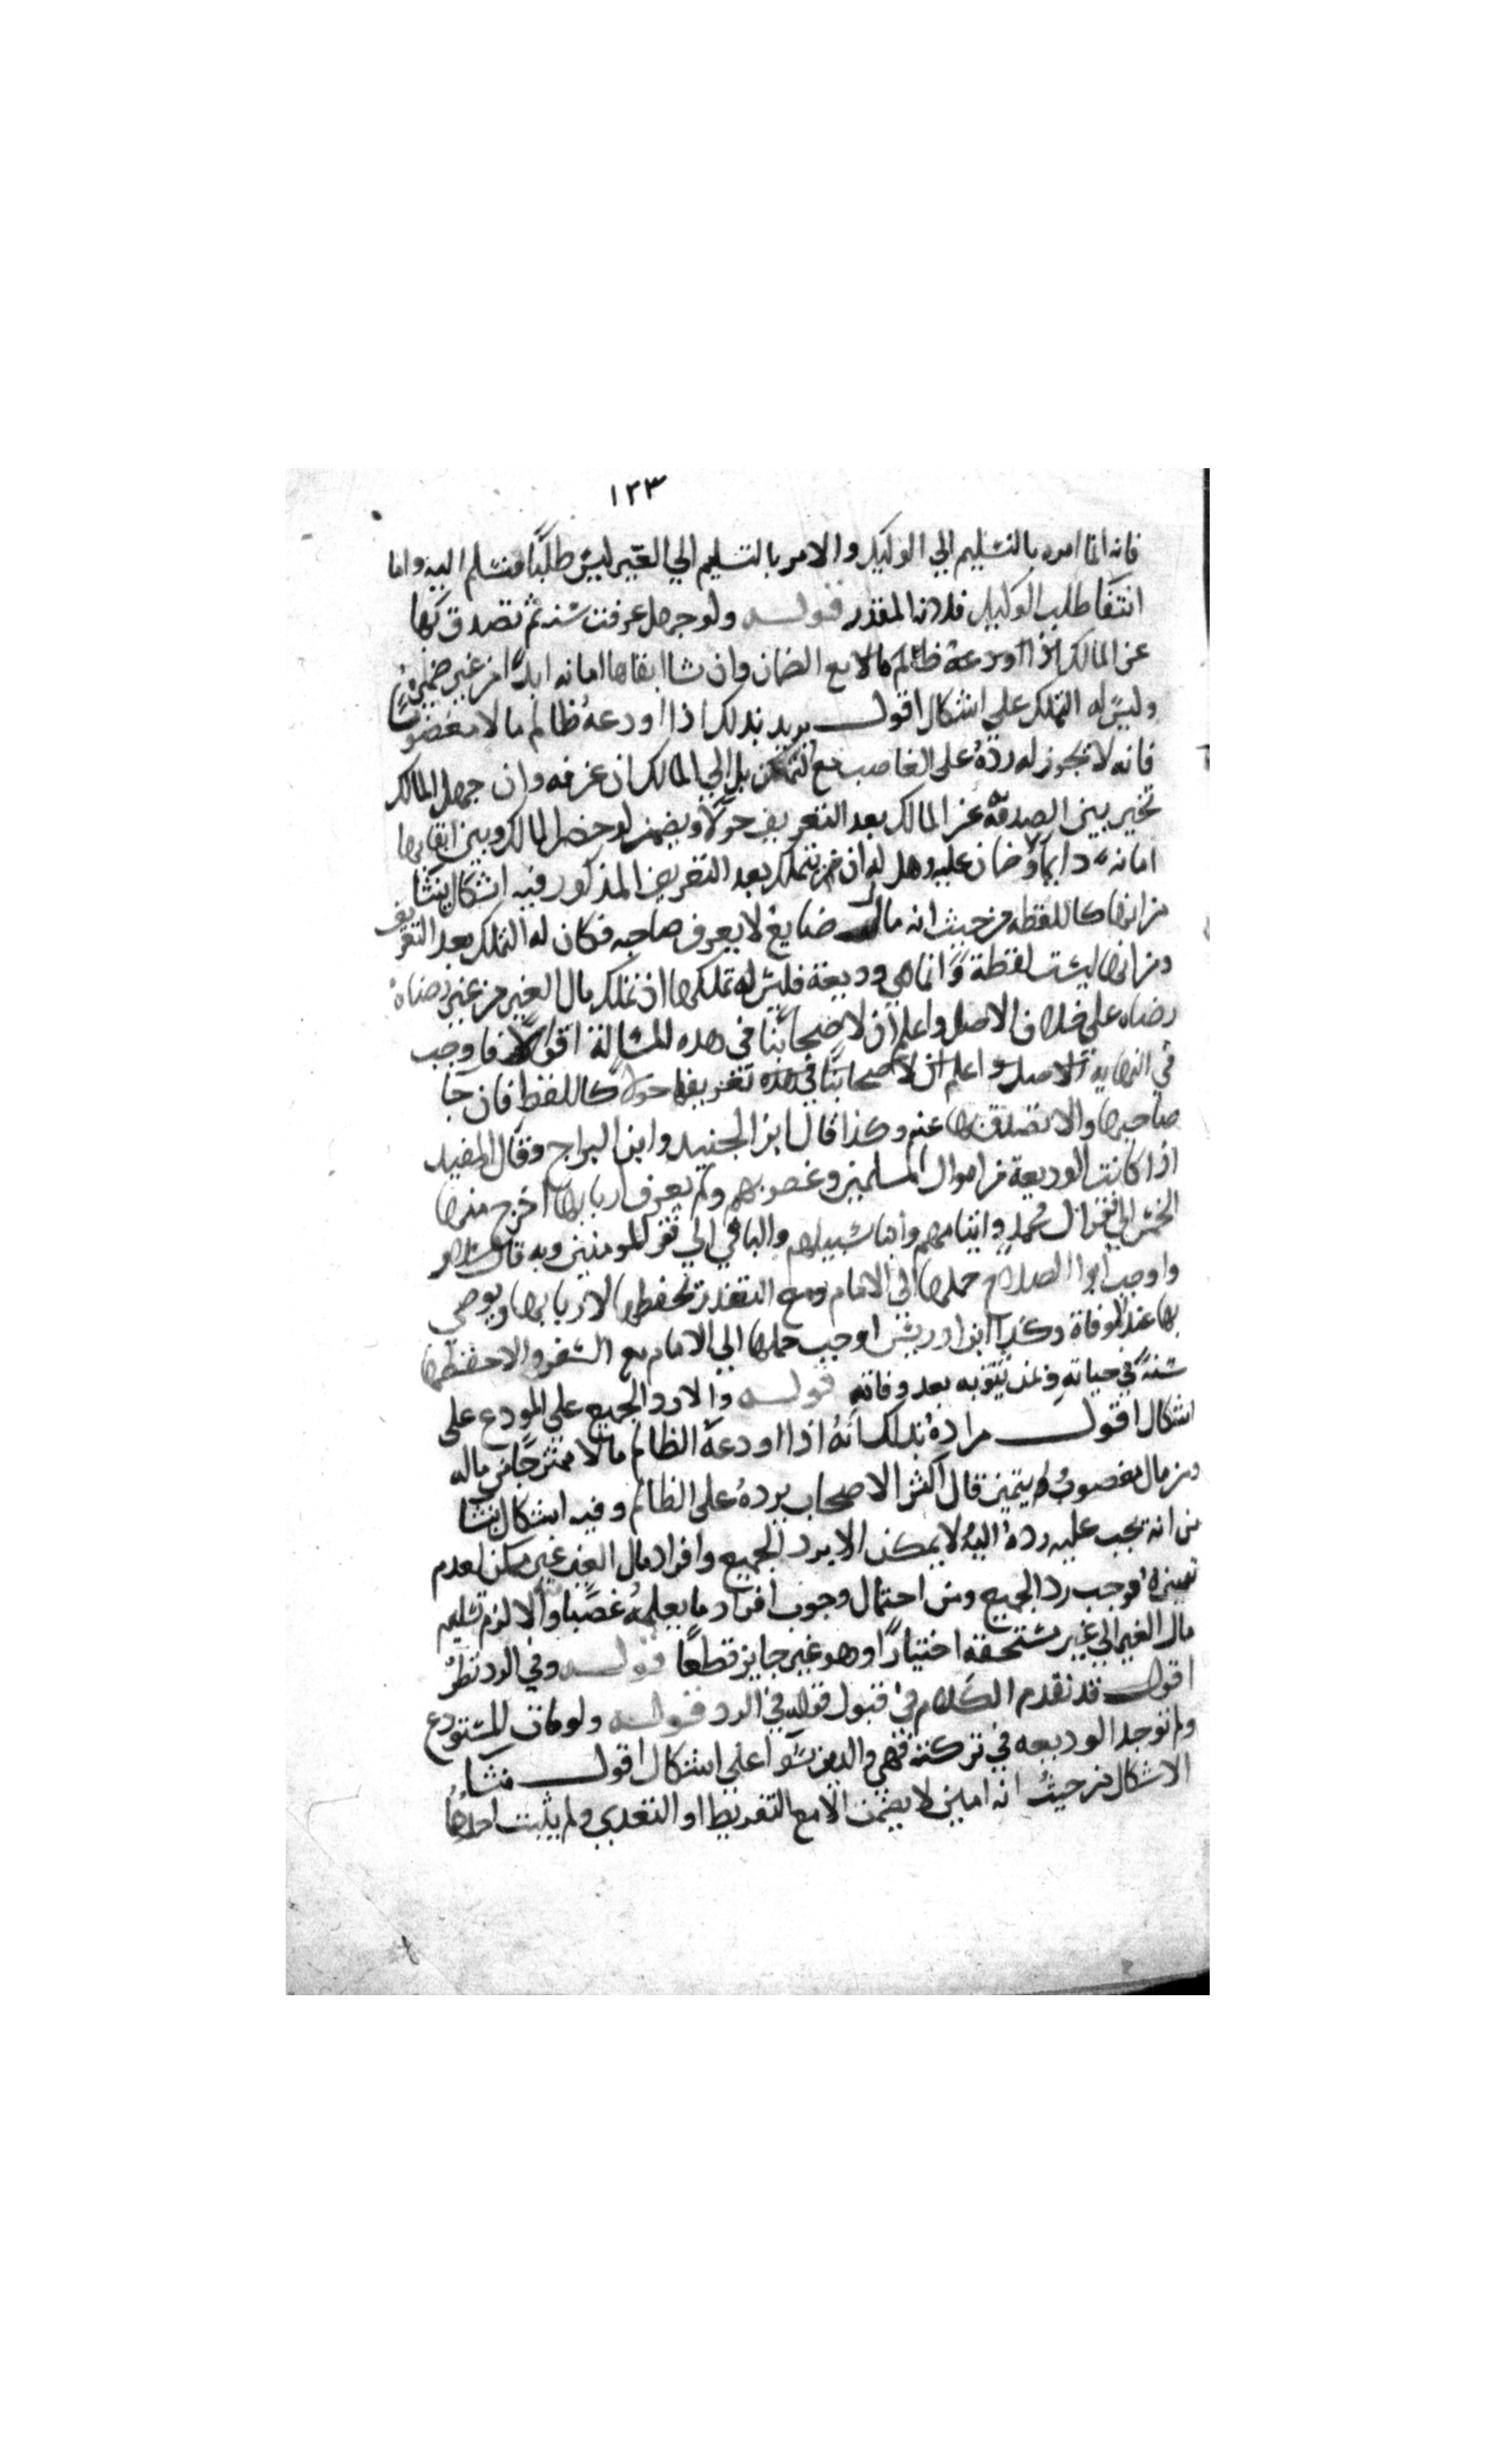 ١٢٣
فانه انما امره بالتسليم الي الوكيل والامر بالتسليم الي الغير ليس طلبًا فتسلم اليه واما
انتفا طلب الوكيل فلانه المقدر قوله ولو جهل عرفت سنه ثم تصدق بها
عن المالك اذا اودعه ظالم مالا مع الضمان وان شا ابقاها امانه ابدًا من غير ضمان
وليس له التملك على اشكال اقول يريد بذلك اذا اودعهُ ظالم مالا مغضوبًا
فانه لا يجوز له ردّهُ على الغاصب مع التمكن بل الي المالك ان عرفه وان جهل المالك
تخير بين الصدقه عن المالك بعد التعريف حولًا ويضمن لو حضر المالك وبين ابقايها
امانه دايمًا ولا ضمان عليه وهل له ان يتملك بعد التعريف المذكور فيه اشكال ينشا
من انها كاللقطه من حيث انه مال ضايع لا يعرف صاحبه فكان له التملك بعد التعريف
ومن انها ليست لقطة وانما هي وديعة فليس له تملكها اذ تملك مال الغير من غير رضاهُ
رضاه على خلاف الاصل واعلم ان لاصحابنا في هذه المسالة اقوالًا فاوجب
في النهاية الاصل واعلم ان لاصحابنا في هذه تعريفها حولا كاللقط فان جا
صاحبها والا تصدق بها عنه وكذا قال ابن الجنيد وابن البراج وقال المفيد
اذا كانت الوديعة من اموال المسلمين وغصوبهم ولم يعرف اربابها اخرج منها
الخمس الي فقرا ال محمد وايتامهم وابنا سبيلهم والباقي الي فقرا المومنين وبه قال سلار
واوجب ابوا الصلاح حملها الى الامام ومع التعذر تحفظها لاربابها ويوصي
بها عند الوفاة وكذا ابن ادريس اوجب حملها الي الامام مع والا حفظها
في حياته بعد وفاته قوله والا رد الجميع على المودع على
اشكال اقول مرادهُ بذلك انهُ اذا اودعهُ الظالم مالا ممتزجًا من ماله
ومن مال مغصوب ولم يتميز قال اكثر الاصحاب يردهُ على الظالم وفيه اشكال ينشا
من انه يجب عليه ردهُ اليه ولا يمكن الا برد الجميع وافراد مال الغير غير ممكن لعدم
تميزه فوجب رد الجميع ومن احتمال وجوب افراد ما يعلمهُ غصبًا والا لزم تسليم
مال الغير الي غير مستحقه اختيارًا وهو غير جايز قطعًا قوله وفي الرد نظرٌ
اقول قد تقدم الكلام في قبول قوله في الرد قوله ولو مات المستودع
ولم توجد الوديعه في تركته فهي والدين سوآ على اشكال اقول منشا
الاشكال من حيث انه امين لا يضمن الا مع التفريط او التعدي ولم يثبت احدهما